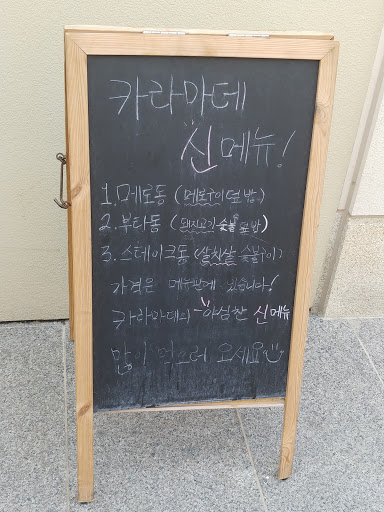 카라마데
신메뉴!
1. 메로동 (메로구이 덮밥)
2. 부타동 (돼지고기 숯불 덮밥)
3. 스테이크동 (살치살 숯불구이)
가격은 메뉴판에 있습니다!
카라마데의 야심찬 신메뉴
많이 먹으러 오세요